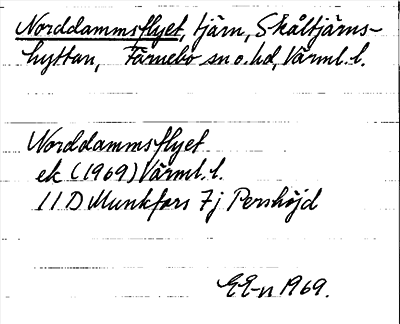 Norddammsflyet, tjärn, Skåltjärns-
hyttan, Färnebo sn o. hd, Värml. l.
Norddammsflyet
ek (1969) Värml. l.
11D Munkfors 7j Pershöjd
EE-n 1969.